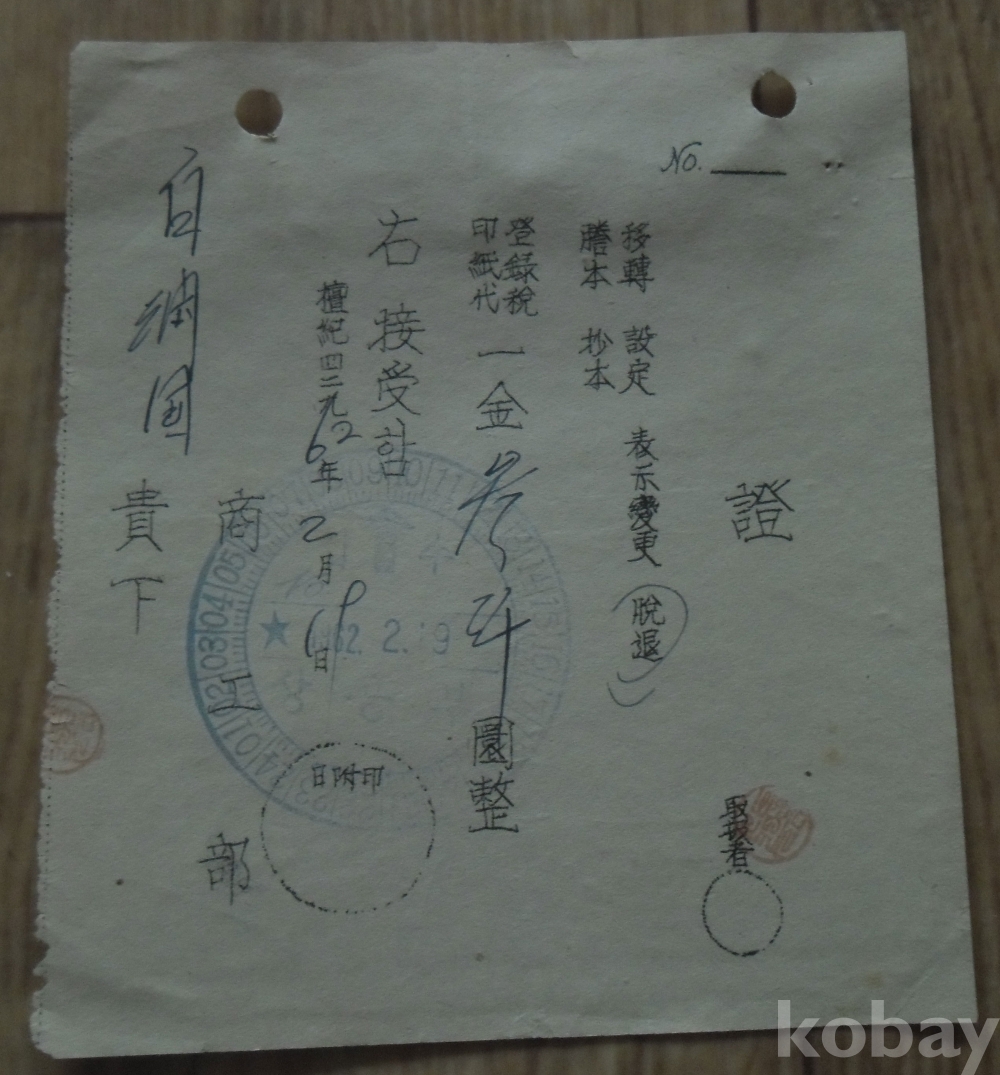 No.
證
取扱者
移轉 設定 表示變更 脫退
謄本 抄本
登錄稅
印紙代
一金 参阡 圜整
右 接受함
檀紀四二九 62年 2月 19日
日附印
1962. 2. 19
商工部
貴下
kobay